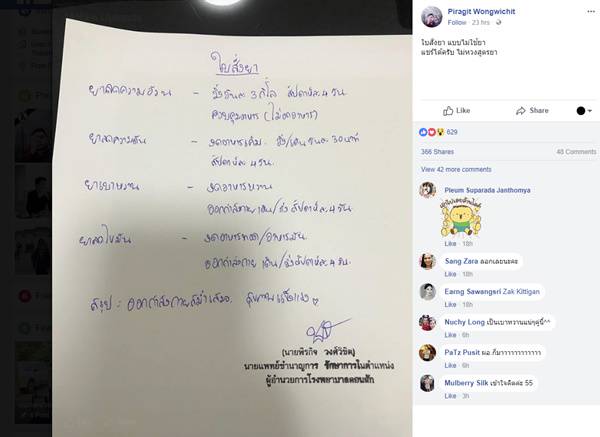 ใบสั่งยา
ยาลดความอ้วน - วิ่งวันละ 3 กิโล สัปดาห์ละ 4 วัน
ควบคุมอาหาร (ไม่อดอาหาร)
ยาลดความดัน - งดอาหารเค็ม วิ่ง/เดิน วันละ 30 นาที
สัปดาห์ละ 4 วัน
ยาเบาหวาน - งดอาหารหวาน
ออกกำลังกาย เดิน/วิ่ง สัปดาห์ละ 4 วัน
ยาลดไขมัน - งดอาหารทอด/อาหารมัน
ออกกำลังกาย เดิน/วิ่ง สัปดาห์ละ 4 วัน
สรุป : ออกกำลังกายสม่ำเสมอ สุขภาพแข็งแรง
(นายพิรกิจ วงศ์วิชิต)
นายแพทย์ชำนาญการ รักษาการในตำแหน่ง
ผู้อำนวยการโรงพยาบาลดอนสัก
Piragit Wongwichit
Follow · 23 hrs ·
ใบสั่งยา แบบไม่ใช้ยา
แชร์ได้ครับ ไม่หวงสูตรยา
Like Share
629
366 Shares 48 Comments
View 42 more comments
Pleum Suparada Janthomya
Like · 18h
Sang Zara ลอกเลยนะคะ
Like · 18h
Earng Sawangsri Zak Kittigan
Like · 18h
Nuchy Long เป็นเบาหวานแน่ๆคู่นี้^^
Like · 6h
PaTz Pusit ผอ.ก็มาาาาาาาาาาา
Like · 6h
Mulberry Silk เข้าใจคิดค่ะ 55
Like · 3h